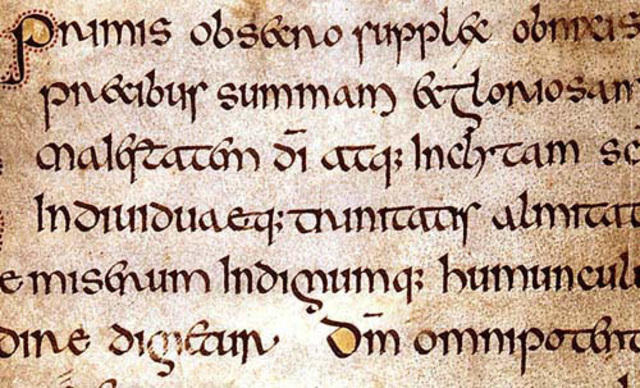 Primis obsecro supplex obnixis
precibus summam & gloriosam
maiestatem dī atq; Inclytam sc
Individuaeq; trinitatis almitat
e miserum Indignumq; humuncul
dire dignetur Dm̄ omnipotent